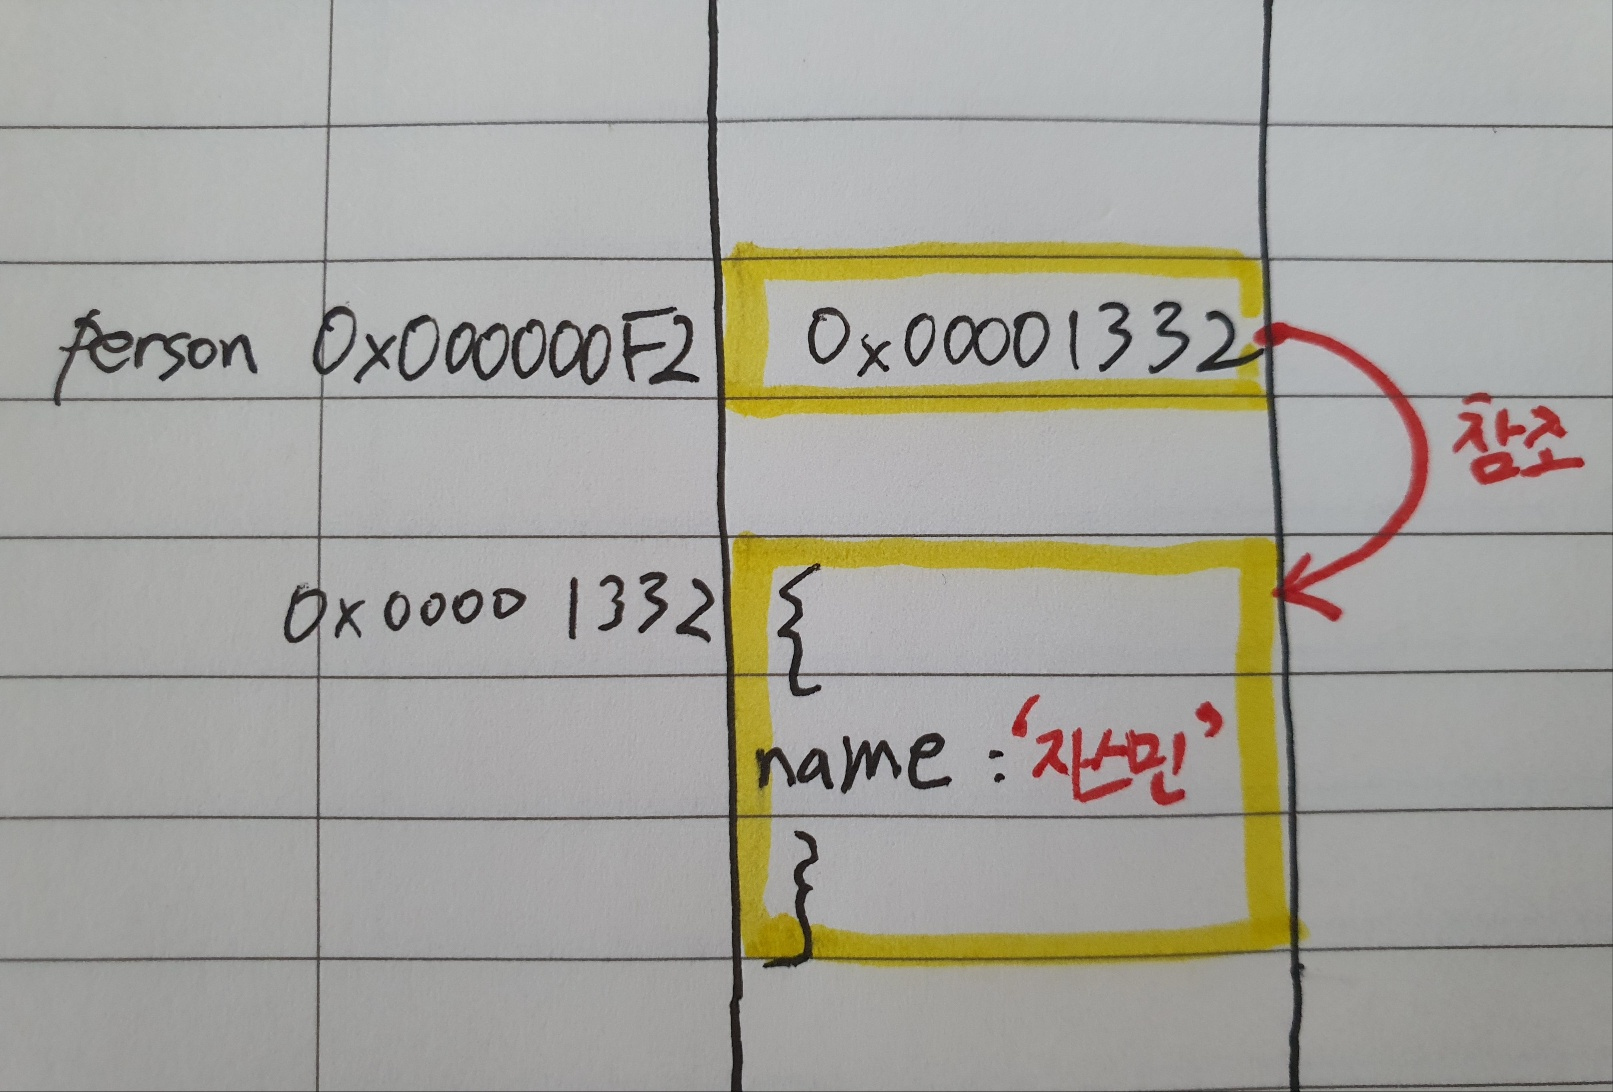 person 0x000000F2 0x00001332
참조
0x00001332 {
name : '쟈스민'
}